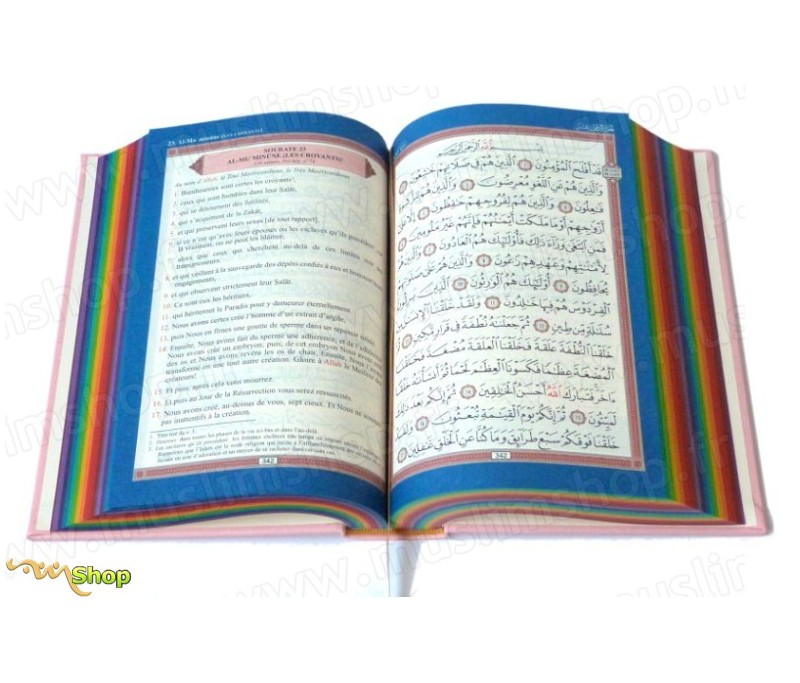 23. Al-Mu'minûne (LES CROYANTS)
SOURATE 23
AL-MU'MINÛNE (LES CROYANTS)
Au nom d'Allah, le Tout Miséricordieux, le Très Miséricordieux
1. Bienheureux sont certes les croyants
2. ceux qui sont humbles dans leur Salât,
3. qui se détournent des futilités,
4. qui s'acquittent de la Zakât,
5. et qui préservent leurs sexes [de tout rapport],
6. si ce n'est qu'avec leurs épouses ou les esclaves qu'ils possèdent
là vraiment, on ne peut les blâmer;
7. alors que ceux qui cherchent au-delà de ces limites sont des
transgresseurs;
8. et qui veillent à la sauvegarde des dépôts confiés à eux et honorent leurs
engagements,
9. et qui observent strictement leur Salât.
10. Ce sont eux les héritiers,
11. qui hériteront le Paradis pour y demeurer éternellement.
12. Nous avons certes créé l'homme d'un extrait d'argile,
13. puis Nous en fîmes une goutte de sperme dans un reposoir solide.
14. Ensuite, Nous avons fait du sperme une adhérence; et de l'adhérence
Nous avons créé un embryon; puis, de cet embryon Nous avons créé
des os et Nous avons revêtu les os de chair. Ensuite, Nous l'avons
transformé en une tout autre création. Gloire à Allah le Meilleur des
créateurs!
15. Et puis, après cela vous mourrez.
16. Et puis au Jour de la Résurrection vous serez ressuscités.
17. Nous avons créé, au-dessus de vous, sept cieux. Et Nous ne sommes
pas inattentifs à la création.
342
بِسْمِ اللَّهِ الرَّحْمَٰنِ الرَّحِيمِ
قَدْ أَفْلَحَ الْمُؤْمِنُونَ ١ الَّذِينَ هُمْ فِي صَلَاتِهِمْ خَاشِعُونَ
٢ وَالَّذِينَ هُمْ عَنِ اللَّغْوِ مُعْرِضُونَ ٣ وَالَّذِينَ هُمْ لِلزَّكَوٰةِ
فَاعِلُونَ ٤ وَالَّذِينَ هُمْ لِفُرُوجِهِمْ حَافِظُونَ ٥ إِلَّا عَلَىٰ
أَزْوَاجِهِمْ أَوْ مَا مَلَكَتْ أَيْمَانُهُمْ فَإِنَّهُمْ غَيْرُ مَلُومِينَ ٦
فَمَنِ ابْتَغَىٰ وَرَاءَ ذَٰلِكَ فَأُولَٰئِكَ هُمُ الْعَادُونَ ٧ وَالَّذِينَ هُمْ
لِأَمَانَاتِهِمْ وَعَهْدِهِمْ رَاعُونَ ٨ وَالَّذِينَ هُمْ عَلَىٰ صَلَوَاتِهِمْ
يُحَافِظُونَ ٩ أُولَٰئِكَ هُمُ الْوَارِثُونَ ١٠ الَّذِينَ يَرِثُونَ
الْفِرْدَوْسَ هُمْ فِيهَا خَالِدُونَ ١١ وَلَقَدْ خَلَقْنَا الْإِنسَانَ مِن
سُلَالَةٍ مِّن طِينٍ ١٢ ثُمَّ جَعَلْنَاهُ نُطْفَةً فِي قَرَارٍ مَّكِينٍ ١٣ ثُمَّ
خَلَقْنَا النُّطْفَةَ عَلَقَةً فَخَلَقْنَا الْعَلَقَةَ مُضْغَةً فَخَلَقْنَا
الْمُضْغَةَ عِظَامًا فَكَسَوْنَا الْعِظَامَ لَحْمًا ثُمَّ أَنشَأْنَاهُ خَلْقًا
آخَرَ فَتَبَارَكَ اللَّهُ أَحْسَنُ الْخَالِقِينَ ١٤ ثُمَّ إِنَّكُم بَعْدَ ذَٰلِكَ
لَمَيِّتُونَ ١٥ ثُمَّ إِنَّكُمْ يَوْمَ الْقِيَامَةِ تُبْعَثُونَ ١٦ وَلَقَدْ
خَلَقْنَا فَوْقَكُمْ سَبْعَ طَرَائِقَ وَمَا كُنَّا عَنِ الْخَلْقِ غَافِلِينَ ١٧
342
Shop
www.muslimshop.fr